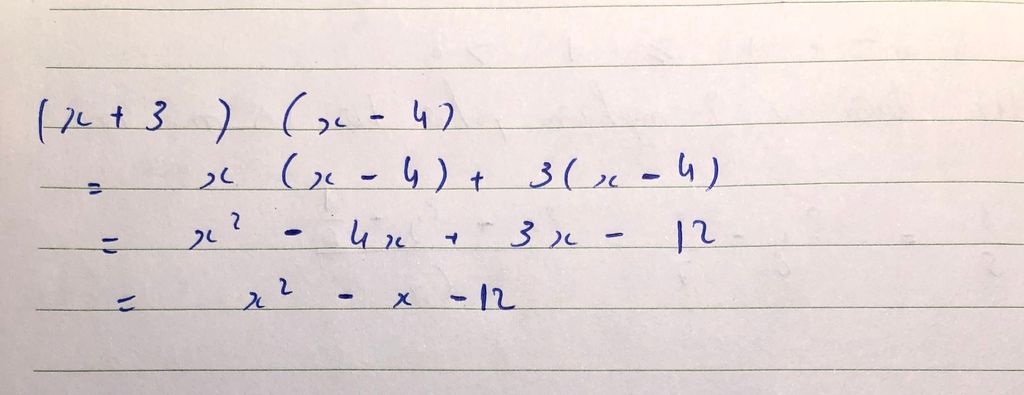 (x + 3) (x - 4)
= x (x - 4) + 3(x - 4)
= x² - 4x + 3x - 12
= x² - x - 12